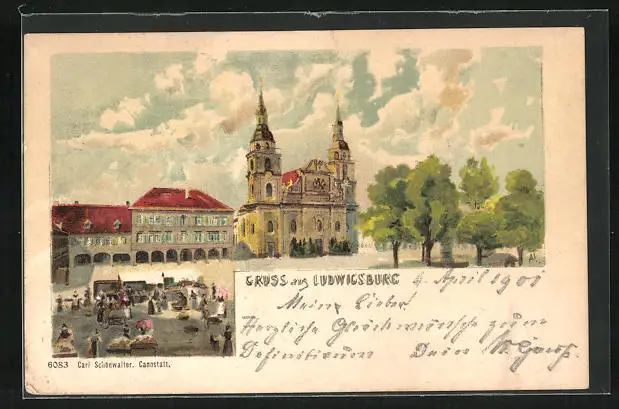 GRUSS aus LUDWIGSBURG 4. April 1901
Meine Lieber!
Herzliche Glückwünsche zum
Definitivum Dein
6083 Carl Schönwalter. Cannstatt.